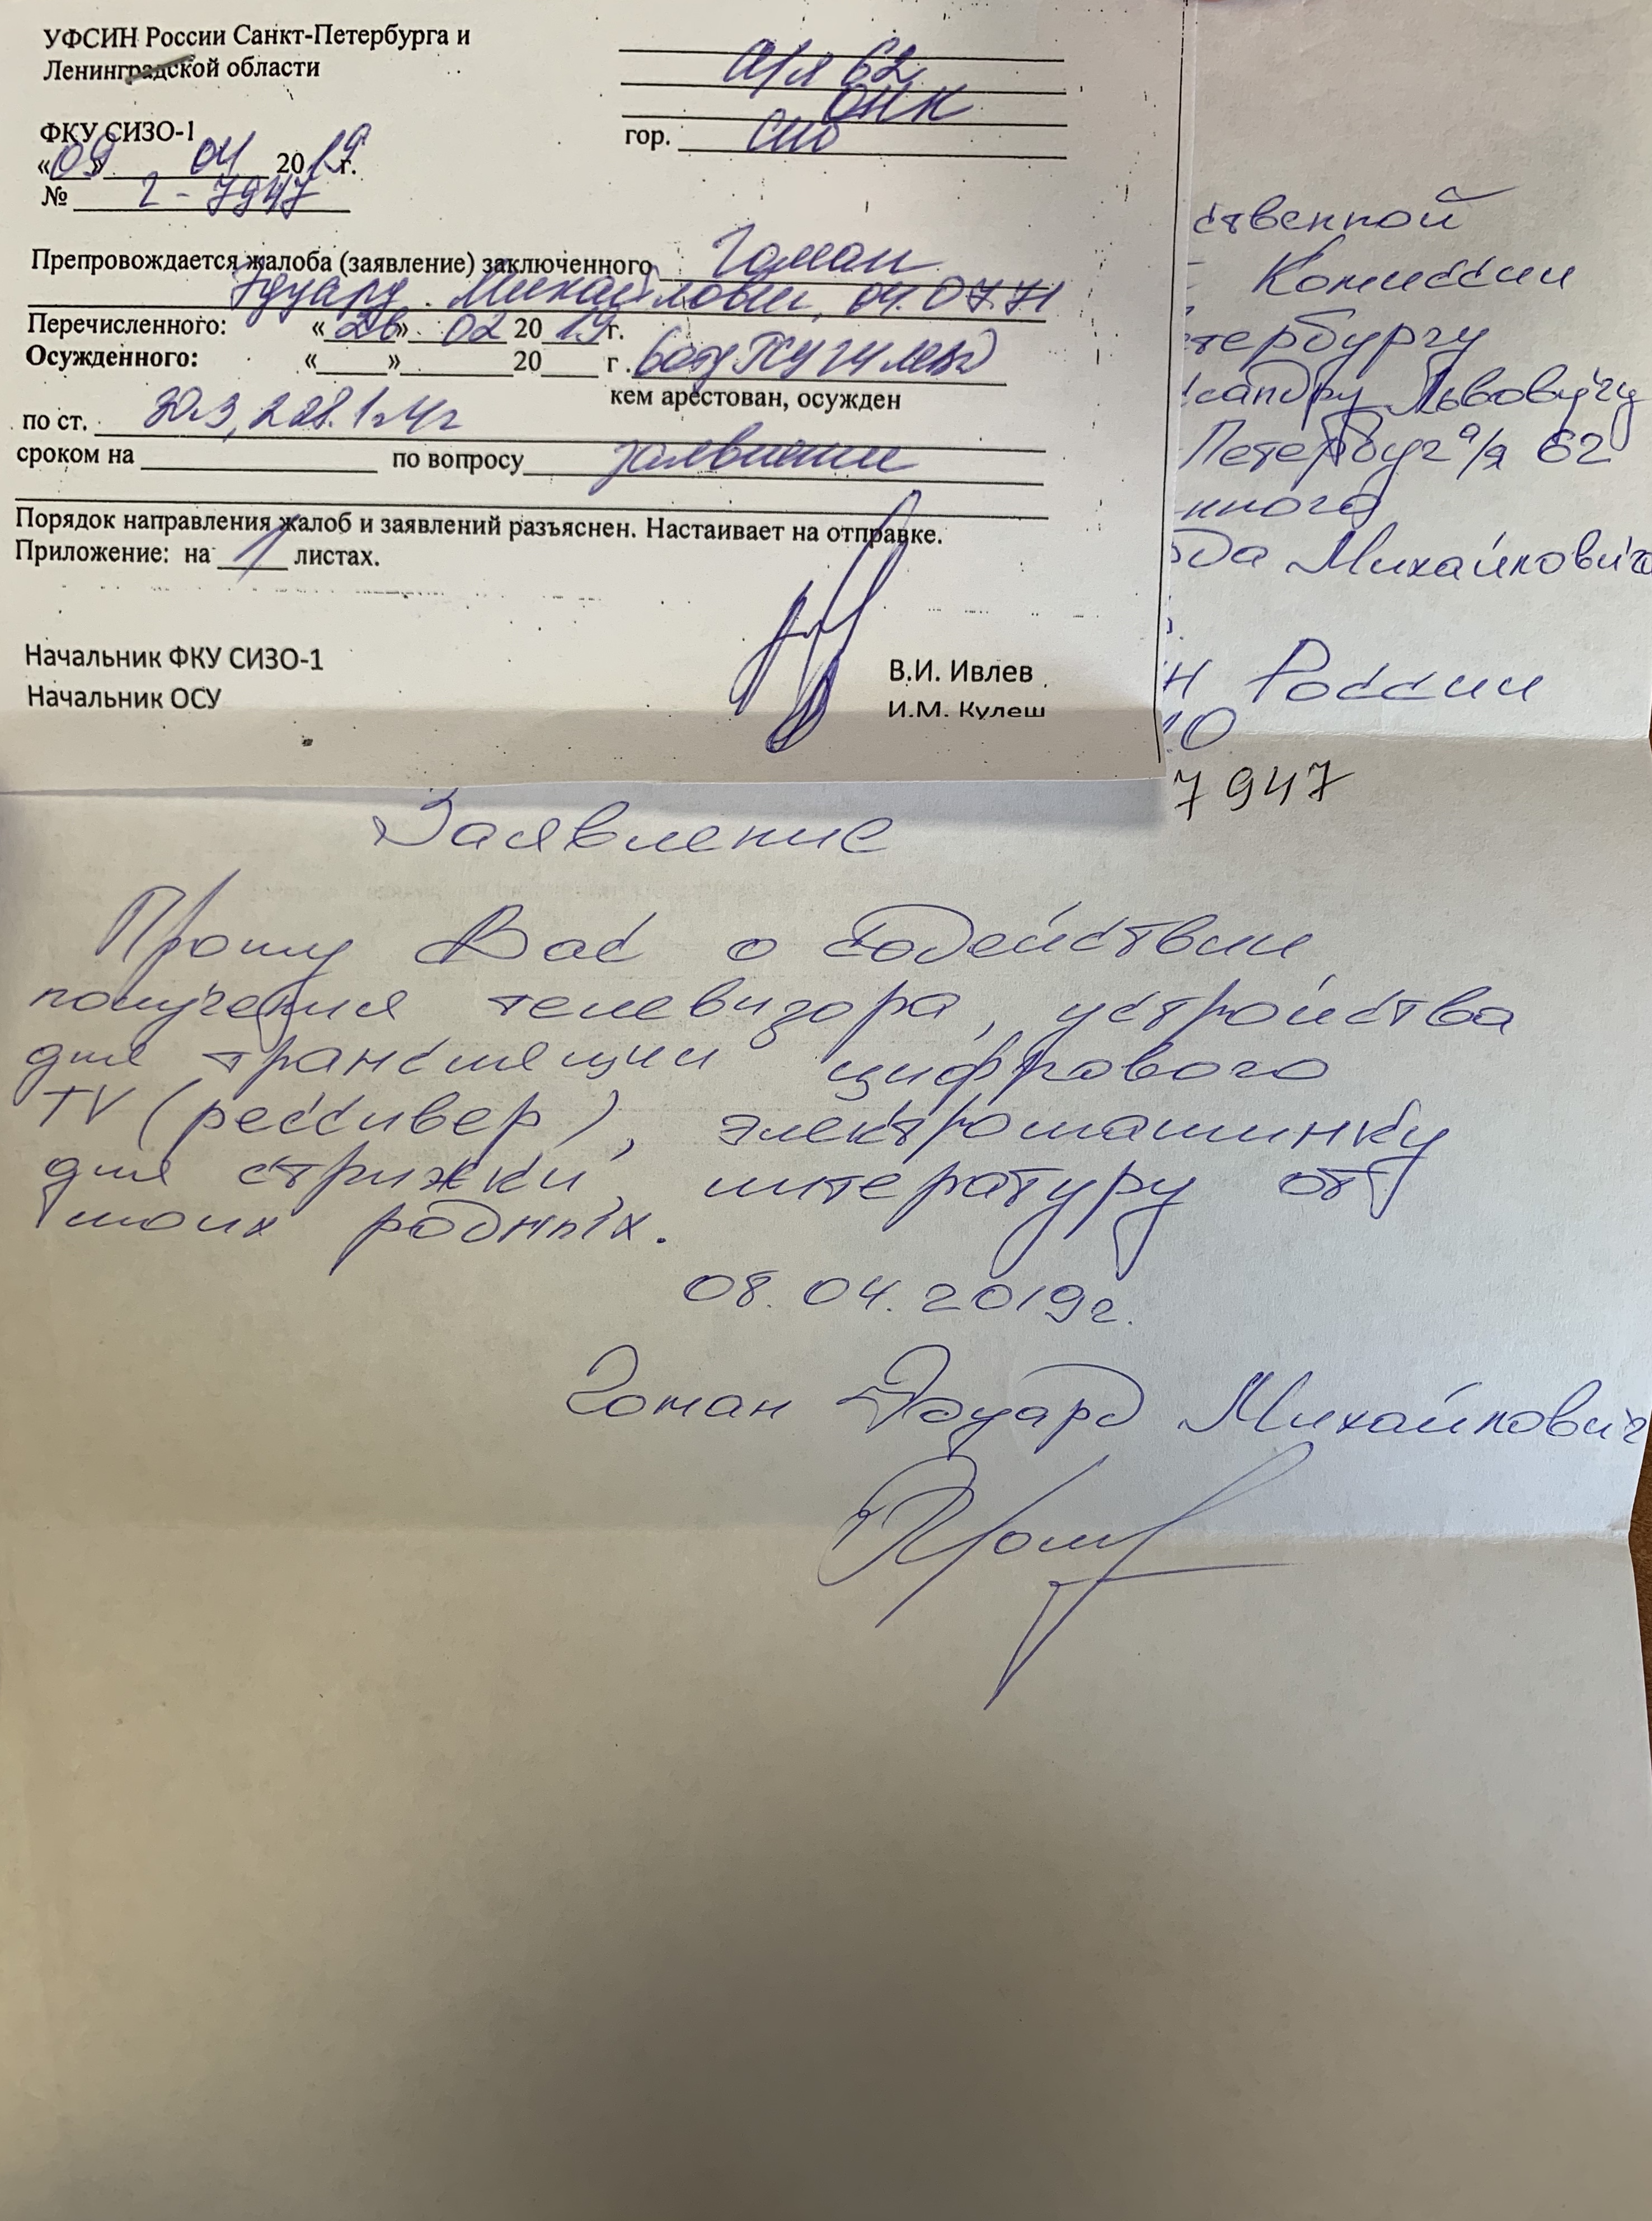 УФСИН России Санкт-Петербурга и
Ленинградской области
ФКУ СИЗО-1
«09» 04 2019 г.
№ 2-7947
а/я 62
ОНК
гор. СПб
Препровождается жалоба (заявление) заключенного Гоман
Эдуард Михайлович, 04.07.71
Перечисленного: «26» 02 2019 г.
Осужденного: « » 20 г.
кем арестован, осужден
по ст. 30.3, 228.1 ч.4г
сроком на по вопросу заявление
Порядок направления жалоб и заявлений разъяснен. Настаивает на отправке.
Приложение: на 1 листах.
Начальник ФКУ СИЗО-1 В.И. Ивлев
Начальник ОСУ И.М. Кулеш
ственной
Комиссии
тербургу
сандру Львовичу
Петербург а/я 62
нного
рда Михайловича
Н России
.О
7947
Заявление
Прошу Вас о содействии
получения телевизора, устройства
для трансляции цифрового
TV (рессивер), электромашинку
для стрижки, литературу от
моих родных.
08.04.2019г.
Гоман Эдуард Михайлович